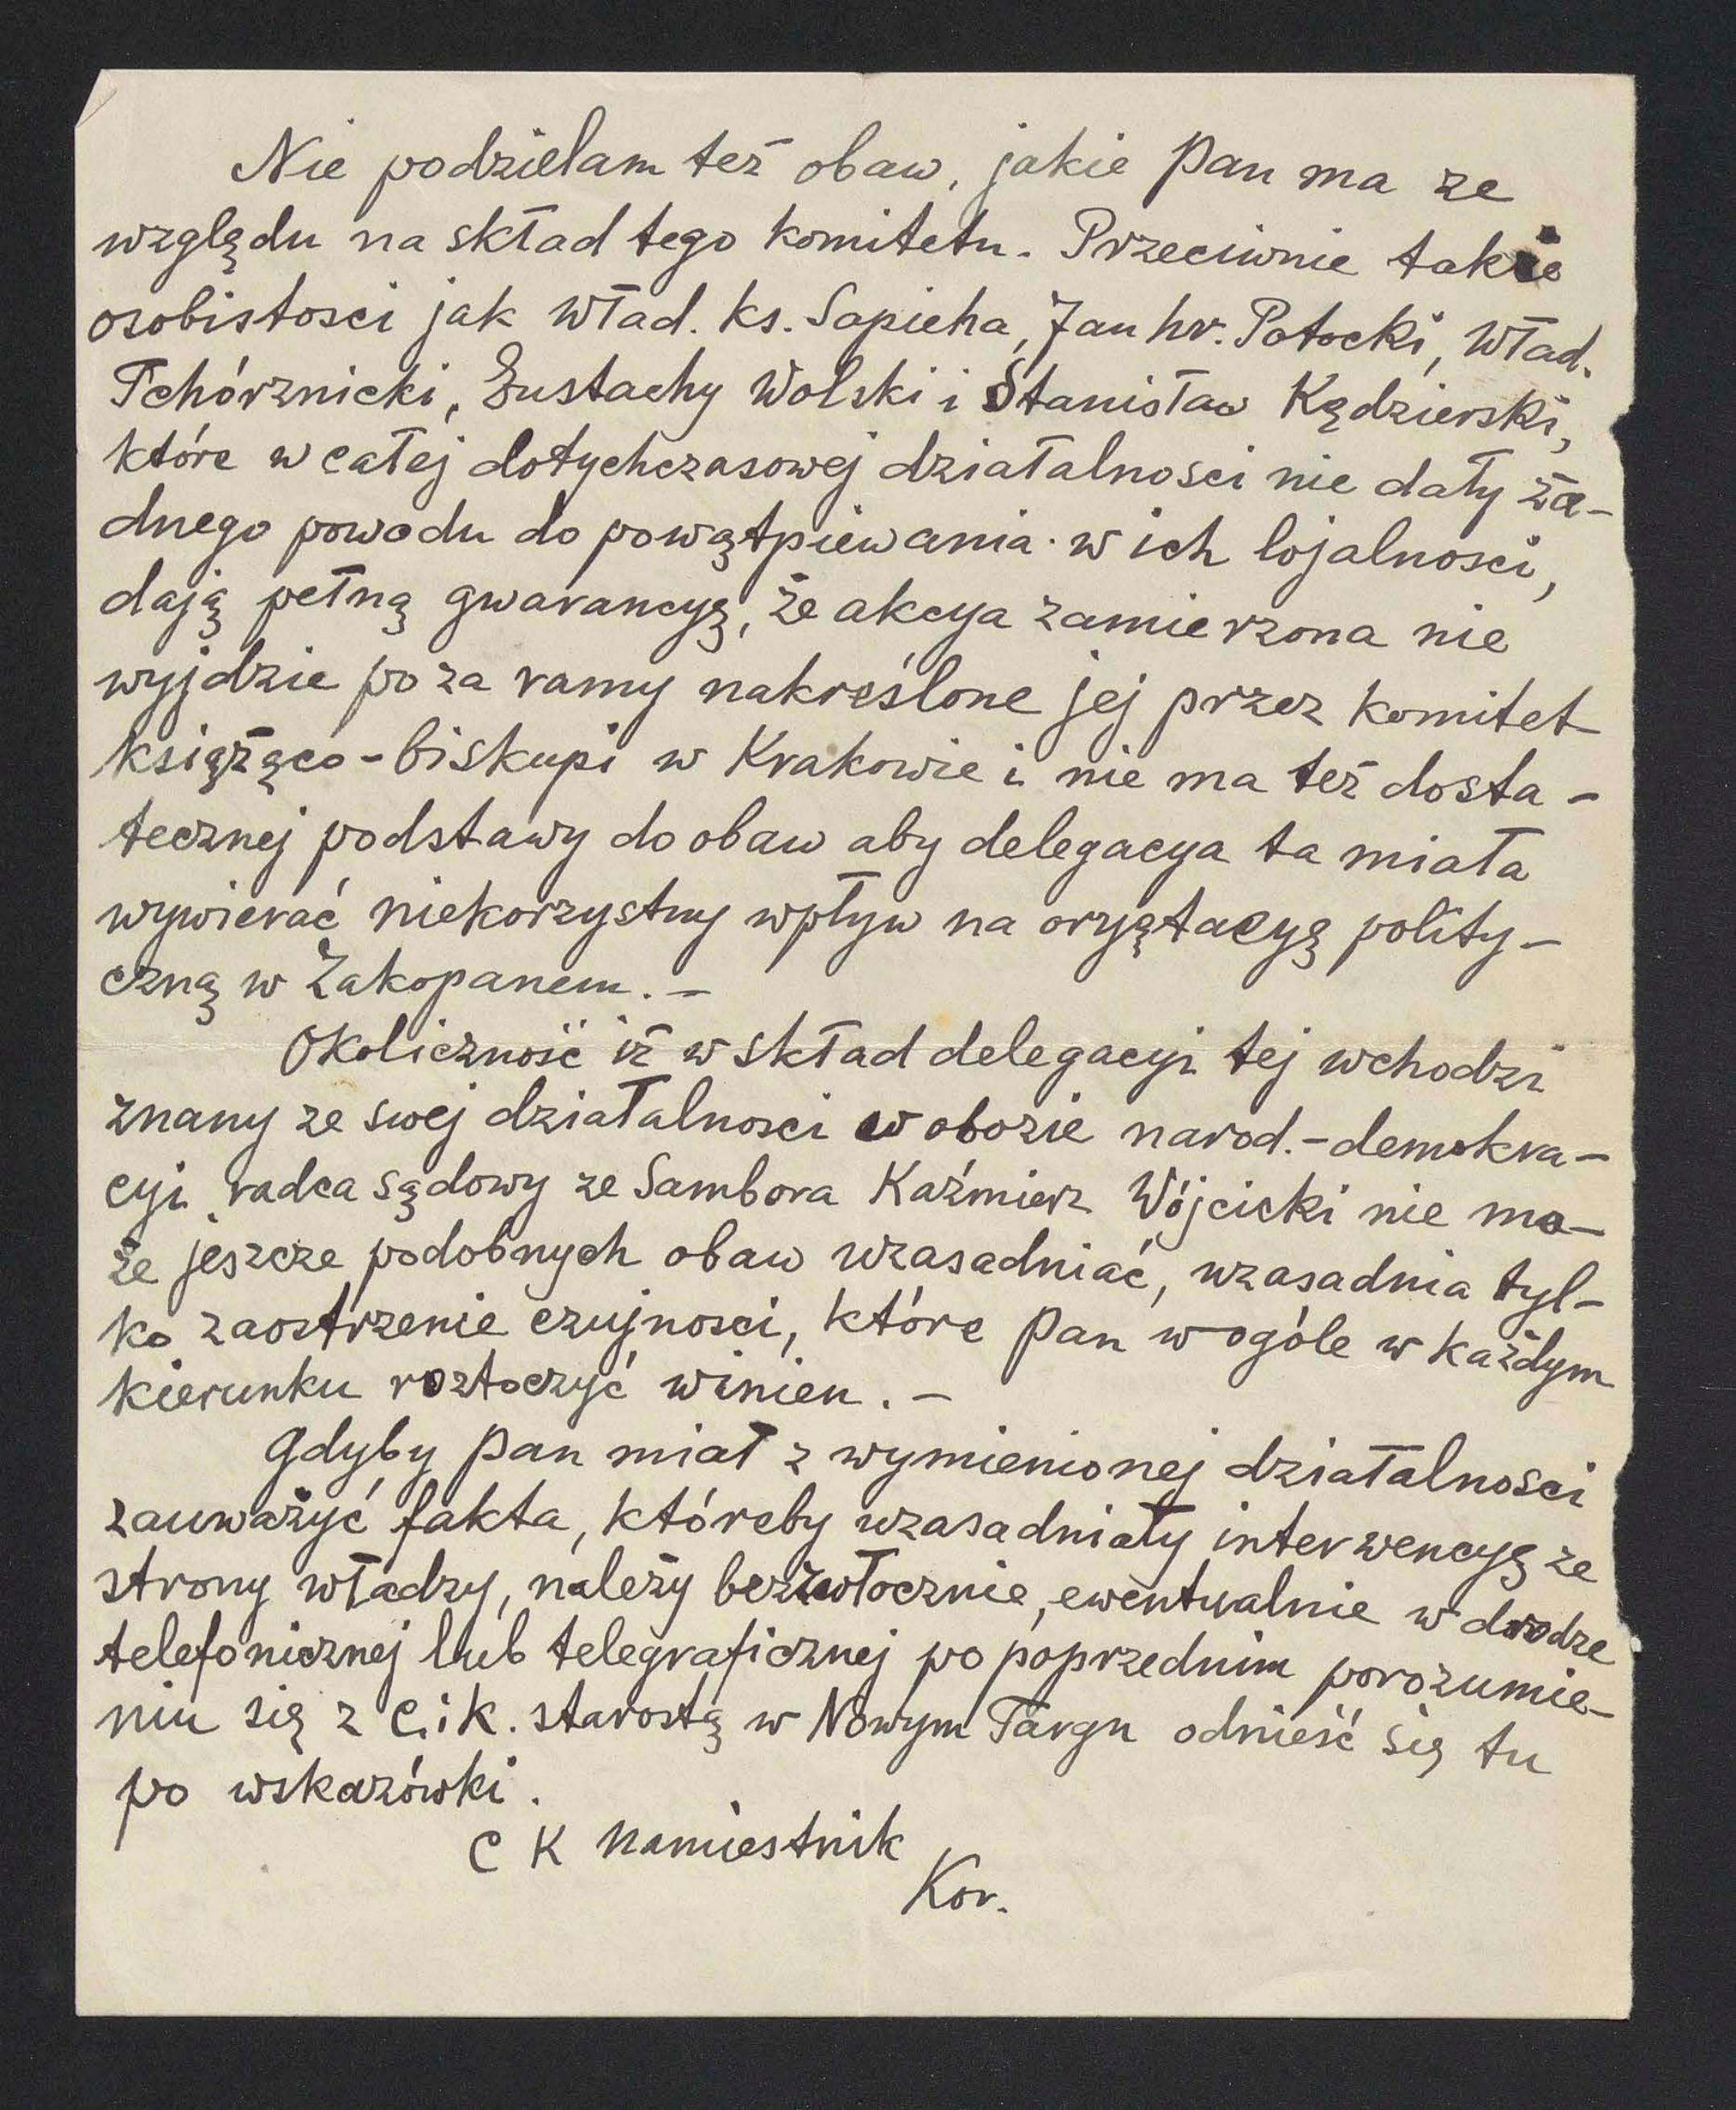 Nie podzielam też obaw, jakie Pan ma ze
względu na skład tego komitetu. Przeciwnie takie
osobistosci jak Wład. ks. Sapieha, Jan hr. Potocki, Wład.
Tchórznicki, Eustachy Wolski i Stanisław Kędzierski,
które w całej dotychczasowej działalnosci nie dały ża-
dnego powodu do powątpiewania w ich lojalnosci,
dają pełną gwarancyę, że akcya zamierzona nie
wyjdzie po za ramy nakreślone jej przez komitet
książęco-biskupi w Krakowie i nie ma też dosta-
tecznej podstawy do obaw aby delegacya ta miała
wywierać niekorzystny wpływ na oryętacyę polity-
czną w Zakopanem. -
Okoliczność iż w skład delegacyi tej wchodzi
znany ze swej działalnosci w obozie narod.-demokra-
cyi radca sądowy ze Sambora Kaźmierz Wójcicki nie mo-
że jeszcze podobnych obaw uzasadniać, uzasadnia tyl-
ko zaostrzenie czujnosci, które Pan w ogóle w każdym
kierunku roztoczyć winien. -
Gdyby Pan miał z wymienionej działalnosci
zauważyć fakta, któreby uzasadniały interwencyę ze
strony władzy, należy bezzwłocznie, ewentualnie w drodze
telefonicznej lub telegraficznej po poprzednim porozumie-
niu się z C. i K. starostą w Nowym Targu odnieść się tu
po wskazówki.
C K Namiestnik
Kor.